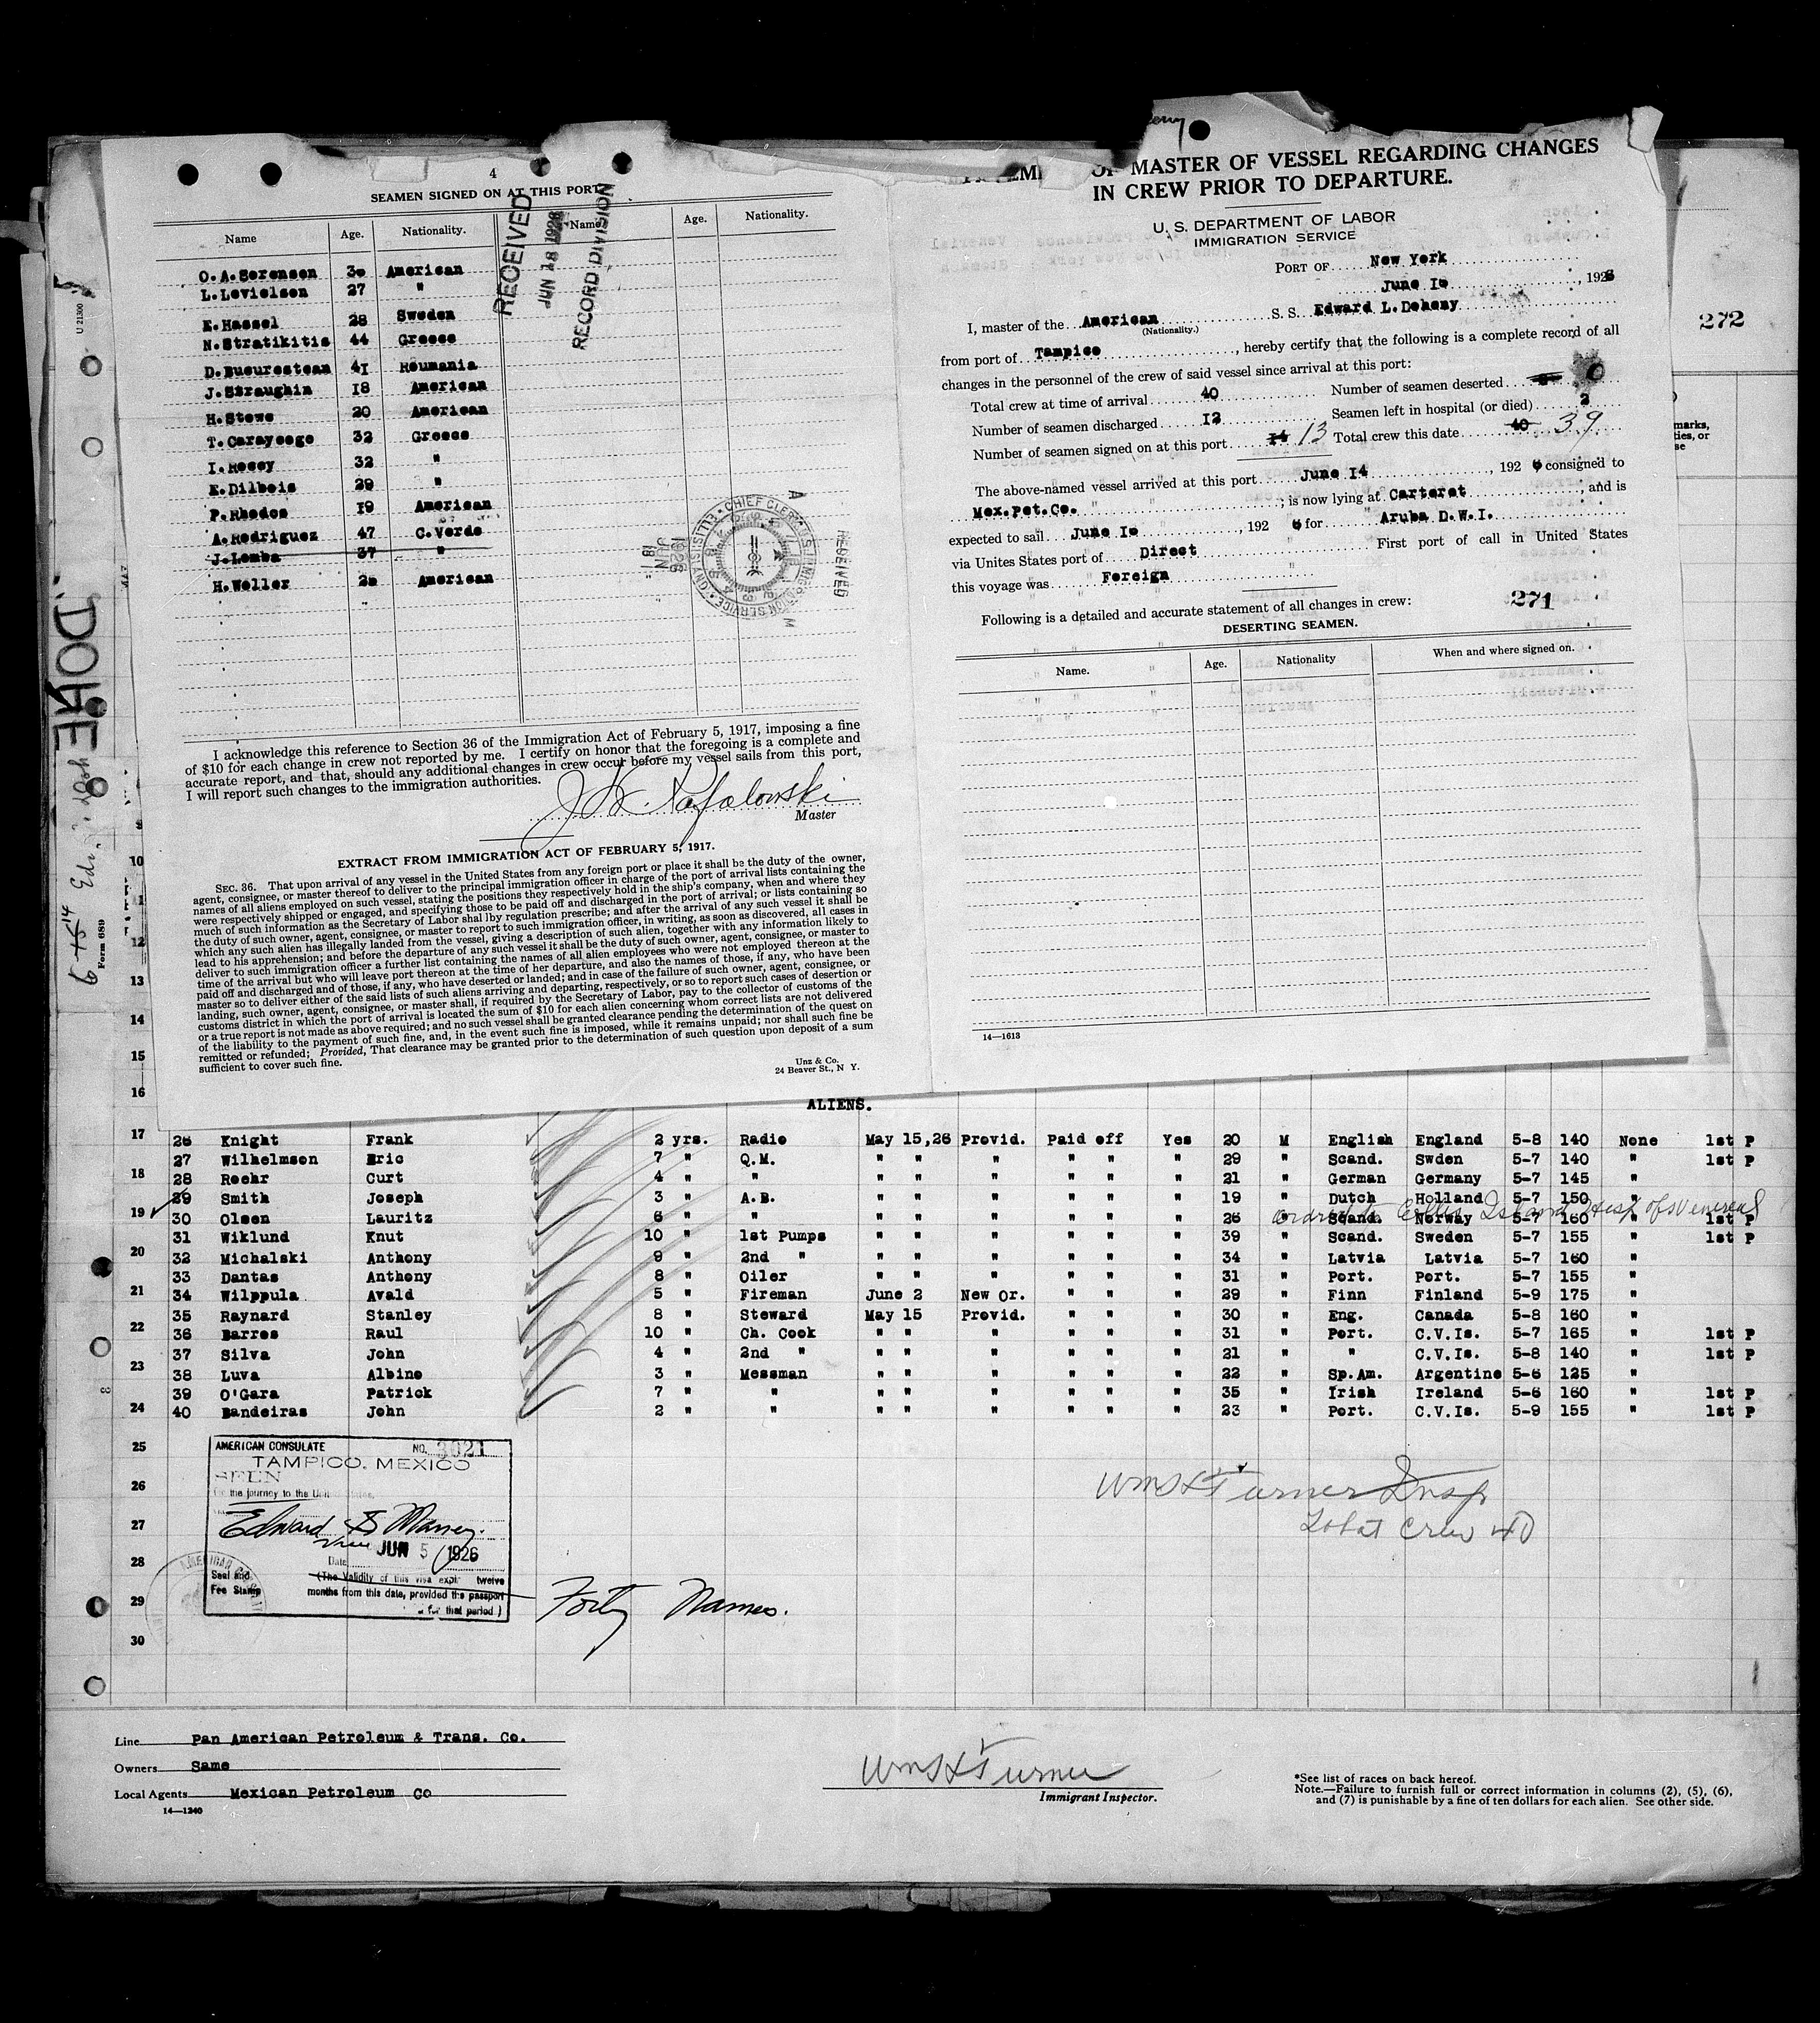 4
SEAMEN SIGNED ON AT THIS PORT
Name Age. Nationality. Name Age. Nationality.
O.A.Sorensen American
L.Levielsen 27 "
E.Hassel 28 Sweden
N.Stratikitis 44 Greece
D.Bucurestean 41 Roumania
J.Straughin 18 American
H.Stowe 20 American
T.Carayeege 32 Greece
I.Recey 32 "
E.Dilbeis 29 "
P.Rhodes 19 American
A.Rodriguez 47 C.Verde
J.Lomba 37 "
H.Weller American
RECEIVED
JUN 18 1926
RECORD DIVISION
I acknowledge this reference to Section 36 of the Immigration Act of February 5, 1917, imposing a fine
of $10 for each change in crew not reported by me. I certify on honor that the foregoing is a complete and
accurate report, and that, should any additional changes in crew occur before my vessel sails from this port,
I will report such changes to the immigration authorities.
Master
EXTRACT FROM IMMIGRATION ACT OF FEBRUARY 5, 1917.
SEC. 36. That upon arrival of any vessel in the United States from any foreign port or place it shall be the duty of the owner,
agent, consignee, or master thereof to deliver to the principal immigration officer in charge of the port of arrival lists containing the
names of all aliens employed on such vessel, stating the positions they respectively hold in the ship's company, when and where they
were respectively shipped or engaged, and specifying those to be paid off and discharged in the port of arrival; or lists containing so
much of such information as the Secretary of Labor shal lby regulation prescribe; and after the arrival of any such vessel it shall be
the duty of such owner, agent, consignee, or master to report to such immigration officer, in writing, as soon as discovered, all cases in
which any such alien has illegally landed from the vessel, giving a description of such alien, together with any information likely to
lead to his apprehension; and before the departure of any such vessel it shall be the duty of such owner, agent, consignee, or master to
deliver to such immigration officer a further list containing the names of all alien employees who were not employed thereon at the
time of the arrival but who will leave port thereon at the time of her departure, and also the names of those, if any, who have been
paid off and discharged and of those, if any, who have deserted or landed; and in case of the failure of such owner, agent, consignee, or
master so to deliver either of the said lists of such aliens arriving and departing, respectively, or so to report such cases of desertion or
landing, such owner, agent, consignee, or master shall, if required by the Secretary of Labor, pay to the collector of customs of the
customs district in which the port of arrival is located the sum of $10 for each alien concerning whom correct lists are not delivered
or a true report is not made as above required; and no such vessel shall be granted clearance pending the determination of the quest on
of the liability to the payment of such fine, and, in the event such fine is imposed, while it remains unpaid; nor shall such fine be
remitted or refunded; Provided, That clearance may be granted prior to the determination of such question upon deposit of a sum
sufficient to cover such fine.
Unz & Co.
24 Beaver St., N Y.
OF MASTER OF VESSEL REGARDING CHANGES
IN CREW PRIOR TO DEPARTURE.
U. S. DEPARTMENT OF LABOR
IMMIGRATION SERVICE
PORT OF New York
June 16, 1926
I, master of the American S. S. Edward L.Doheny
(Nationality.)
from port of Tampico, hereby certify that the following is a complete record of all
changes in the personnel of the crew of said vessel since arrival at this port:
Total crew at time of arrival 40 Number of seamen deserted 0
Number of seamen discharged 12 Seamen left in hospital (or died) 2
Number of seamen signed on at this port 14 13 Total crew this date 40 39
The above-named vessel arrived at this port June 14, 192 6 consigned to
Mex.Pet.Co.; is now lying at Carteret, and is
expected to sail June 16, 192 6 for Aruba D.W.I.
via Unites States port of Direct First port of call in United States
this voyage was Foreign
271
Following is a detailed and accurate statement of all changes in crew:
DESERTING SEAMEN.
Name. Age. Nationality When and where signed on.
14—1613
272
U 21300
Form 689
10
11
12
13
14
15
16
17
18
19
20
21
22
23
24
25
26
27
28
29
30
ALIENS.
26 Knight Frank 2 yrs. Radio May 15,26 Provid. Paid off Yes 20 M English England 5-8 140 None 1st P
27 Wilhelmson Eric 7 " Q.M. " " " " " " 29 " Scand. Swden 5-7 140 " 1st P
28 Roehr Curt 4 " " " " " " " " 21 " German Germany 5-7 145 "
29 Smith Joseph 3 " A.B. " " " " " " 19 " Dutch Holland 5-7 150 "
ordered to Ellis Island Hosp
30 Olsen Lauritz 6 " " " " " " " " 26 " Scand. Norway 5-7 160 " 1st P
31 Wiklund Knut 10 " 1st Pumps " " " " " " 39 " Scand. Sweden 5-7 155 " 1st P
32 Michalski Anthony 9 " 2nd " " " " " " " 34 " Latvia Latvia 5-7 160 "
33 Dantas Anthony 8 " Oiler " " " " " " 31 " Port. Port. 5-7 155 "
34 Wilppula Avald 5 " Fireman June 2 New Or. " " " 29 " Finn Finland 5-9 175 "
35 Raynard Stanley 8 " Steward May 15 Provid. " " " 30 " Eng. Canada 5-8 160 "
36 Barros Raul 10 " Ch. Cook " " " " " " 31 " Port. C.V.Is. 5-7 165 " 1st P
37 Silva John 4 " 2nd " " " " " " " 21 " " C.V.Is. 5-8 140 " 1st P
38 Luva Albino 3 " Messman " " " " " " 22 " Sp.Am. Argentine 5-6 125 "
39 O'Gara Patrick 7 " " " " " " " " 35 " Irish Ireland 5-6 160 " 1st P
40 Bandeiras John 2 " " " " " " " " 23 " Port. C.V.Is. 5-9 155 " 1st P
AMERICAN CONSULATE NO. 3021
TAMPICO, MEXICO
SEEN
the journey to the United States.
JUN 5 1926
Date
Seal and
Fee Stamp
(The Validity of this visa expi twelve
months from this date, provided the passport
for that period)
Forty Names.
Wm Turner Insp
Total Crew 40
Line Pan American Petroleum & Trans. Co.
Owners Same
Local Agents Mexican Petroleum Co
14—1240
Wm Turner
Immigrant Inspector.
*See list of races on back hereof.
Note.—Failure to furnish full or correct information in columns (2), (5), (6),
and (7) is punishable by a fine of ten dollars for each alien. See other side.